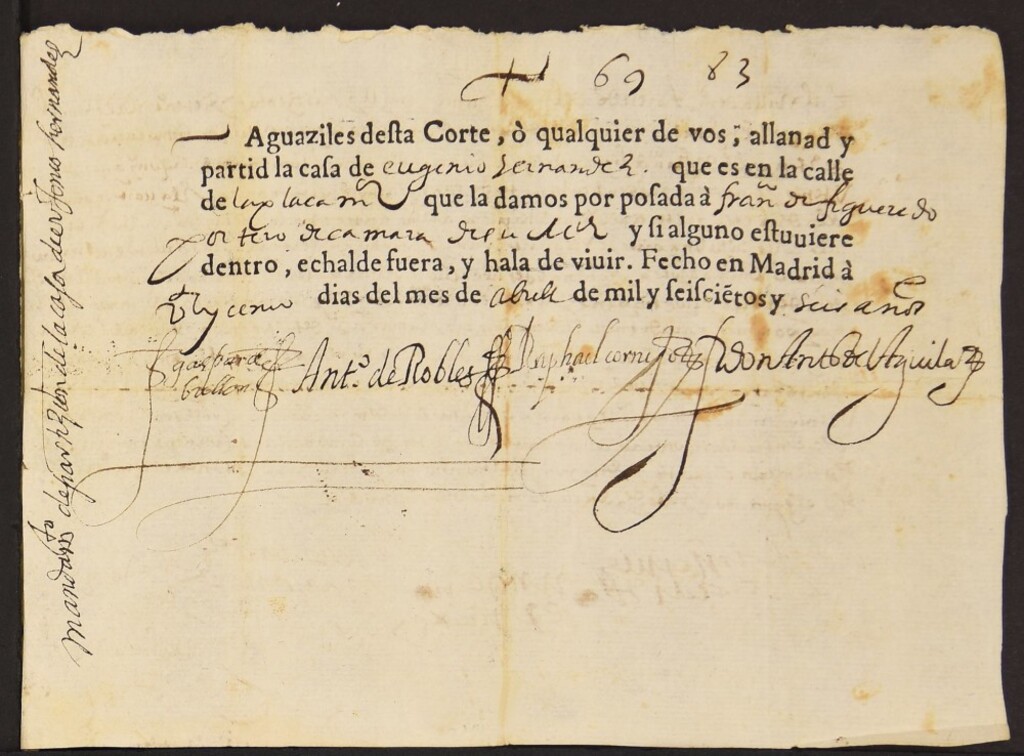 + 69 83
Aguaziles desta Corte, ò qualquier de vos, allanad y
partid la casa de eugenio hernandez. que es en la calle
de la plaça mr que la damos por posada à fran de figueredo
portero de camara de su md y si alguno estuuiere
dentro, echalde fuera, y hala de viuir. Fecho en Madrid à
dias del mes de abril de mil y seisciẽtos y seis años
gaspar de
bullon Antº. de Robles Raphael cornejo don Antº del Aguila
mandamyto de partizion de la casa de hernandez